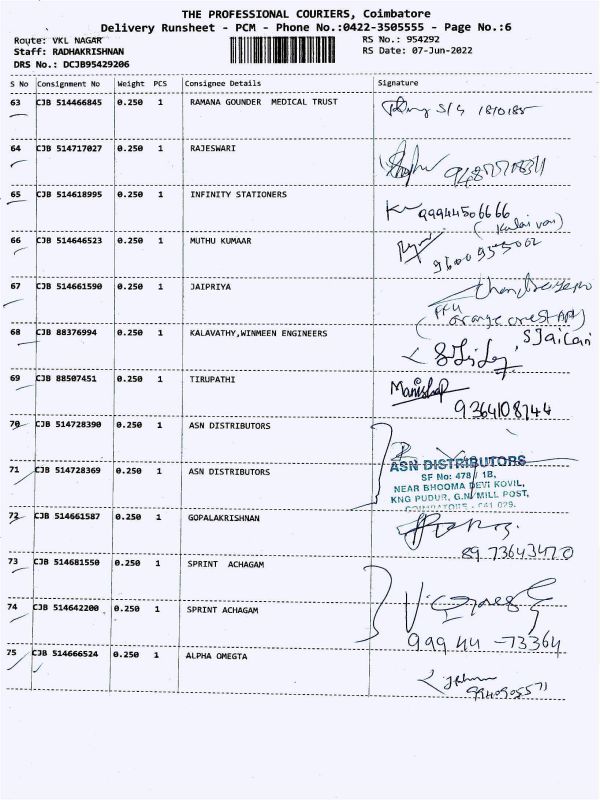 THE PROFESSIONAL COURIERS, Coimbatore
Delivery Runsheet - PCM - Phone No.:0422-3505555 - Page No.:6
Route: VKL NAGAR
RS No.: 954292
Staff: RADHAKRISHNAN
RS Date: 07-Jun-2022
DRS No.: DCJB95429206
S No Consignment No Weight PCS Consignee Details Signature
63 CJB 514466845 0.250 1 RAMANA GOUNDER MEDICAL TRUST
64 CJB 514717027 0.250 1 RAJESWARI
65 CJB 514618995 0.250 1 INFINITY STATIONERS
99944506666
66 CJB 514646523 0.250 1 MUTHU KUMAAR
67 CJB 514661590 0.250 1 JAIPRIYA
68 CJB 88376994 0.250 1 KALAVATHY,WINMEEN ENGINEERS
69 CJB 88507451 0.250 1 TIRUPATHI
9364108744
70 CJB 514728390 0.250 1 ASN DISTRIBUTORS
71 CJB 514728369 0.250 1 ASN DISTRIBUTORS
ASN DISTRIBUTORS
SF No: 478 / 1B,
NEAR BHOOMA DEVI KOVIL,
KNG PUDUR, G.N. MILL POST,
COIMBATORE - 641 029.
72 CJB 514661587 0.250 1 GOPALAKRISHNAN
8973643470
73 CJB 514681550 0.250 1 SPRINT ACHAGAM
74 CJB 514642200 0.250 1 SPRINT ACHAGAM
99944-73364
75 CJB 514666524 0.250 1 ALPHA OMEGTA
9940905571